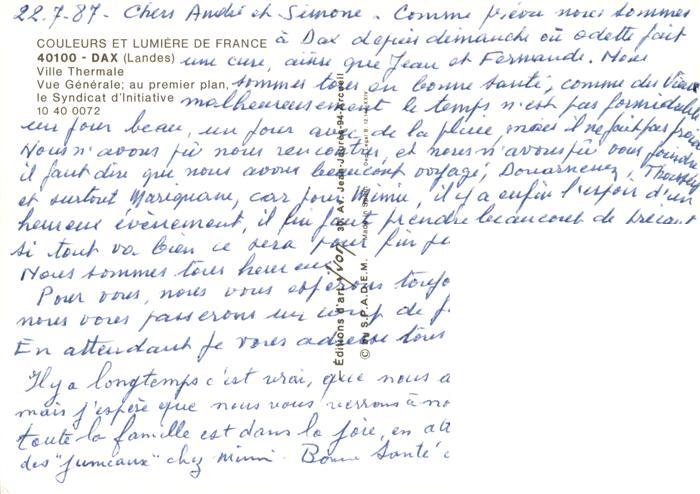 22.7.87 - Chers André et Simone - Comme prévu nous sommes
COULEURS ET LUMIÈRE DE FRANCE
40100 - DAX (Landes)
Ville Thermale
Vue Générale; au premier plan,
le Syndicat d'Initiative
10 40 0072
à Dax depuis dimanche où odette fait
une cure, ainsi que Jean et Fernande. Nous
sommes tous en bonne santé, comme des Vieux
malheureusement le temps n'est pas formidable
un jour beau, un jour avec de la pluie, mais il ne fait pas froid
Nous n'avons pû nous rencontrer, et nous n'avons pu vous joindre
il faut dire que nous avons beaucoup voyagé, Douarnenez,
et surtout Marignane, car pour Mimie, il y a enfin l'espoir d'un
heureux évènement, il lui faut prendre beaucoup de
si tout va bien ce sera pour fin
Nous sommes tous heureux
Pour vous, nous vous espérons
nous vous passerons un coup de
En attendant je vous adresse tous
Il y a longtemps c'est vrai, que nous a
mais j'espère que nous vous verrons à no
toute la famille est dans la joie, en att
des "jumeaux" chez Mimi - Bonne Santé
Éditions d'art Yvon 30, Av. Jean-Jaurès-94-Arcueil
© by S.P.A.D.E.M.